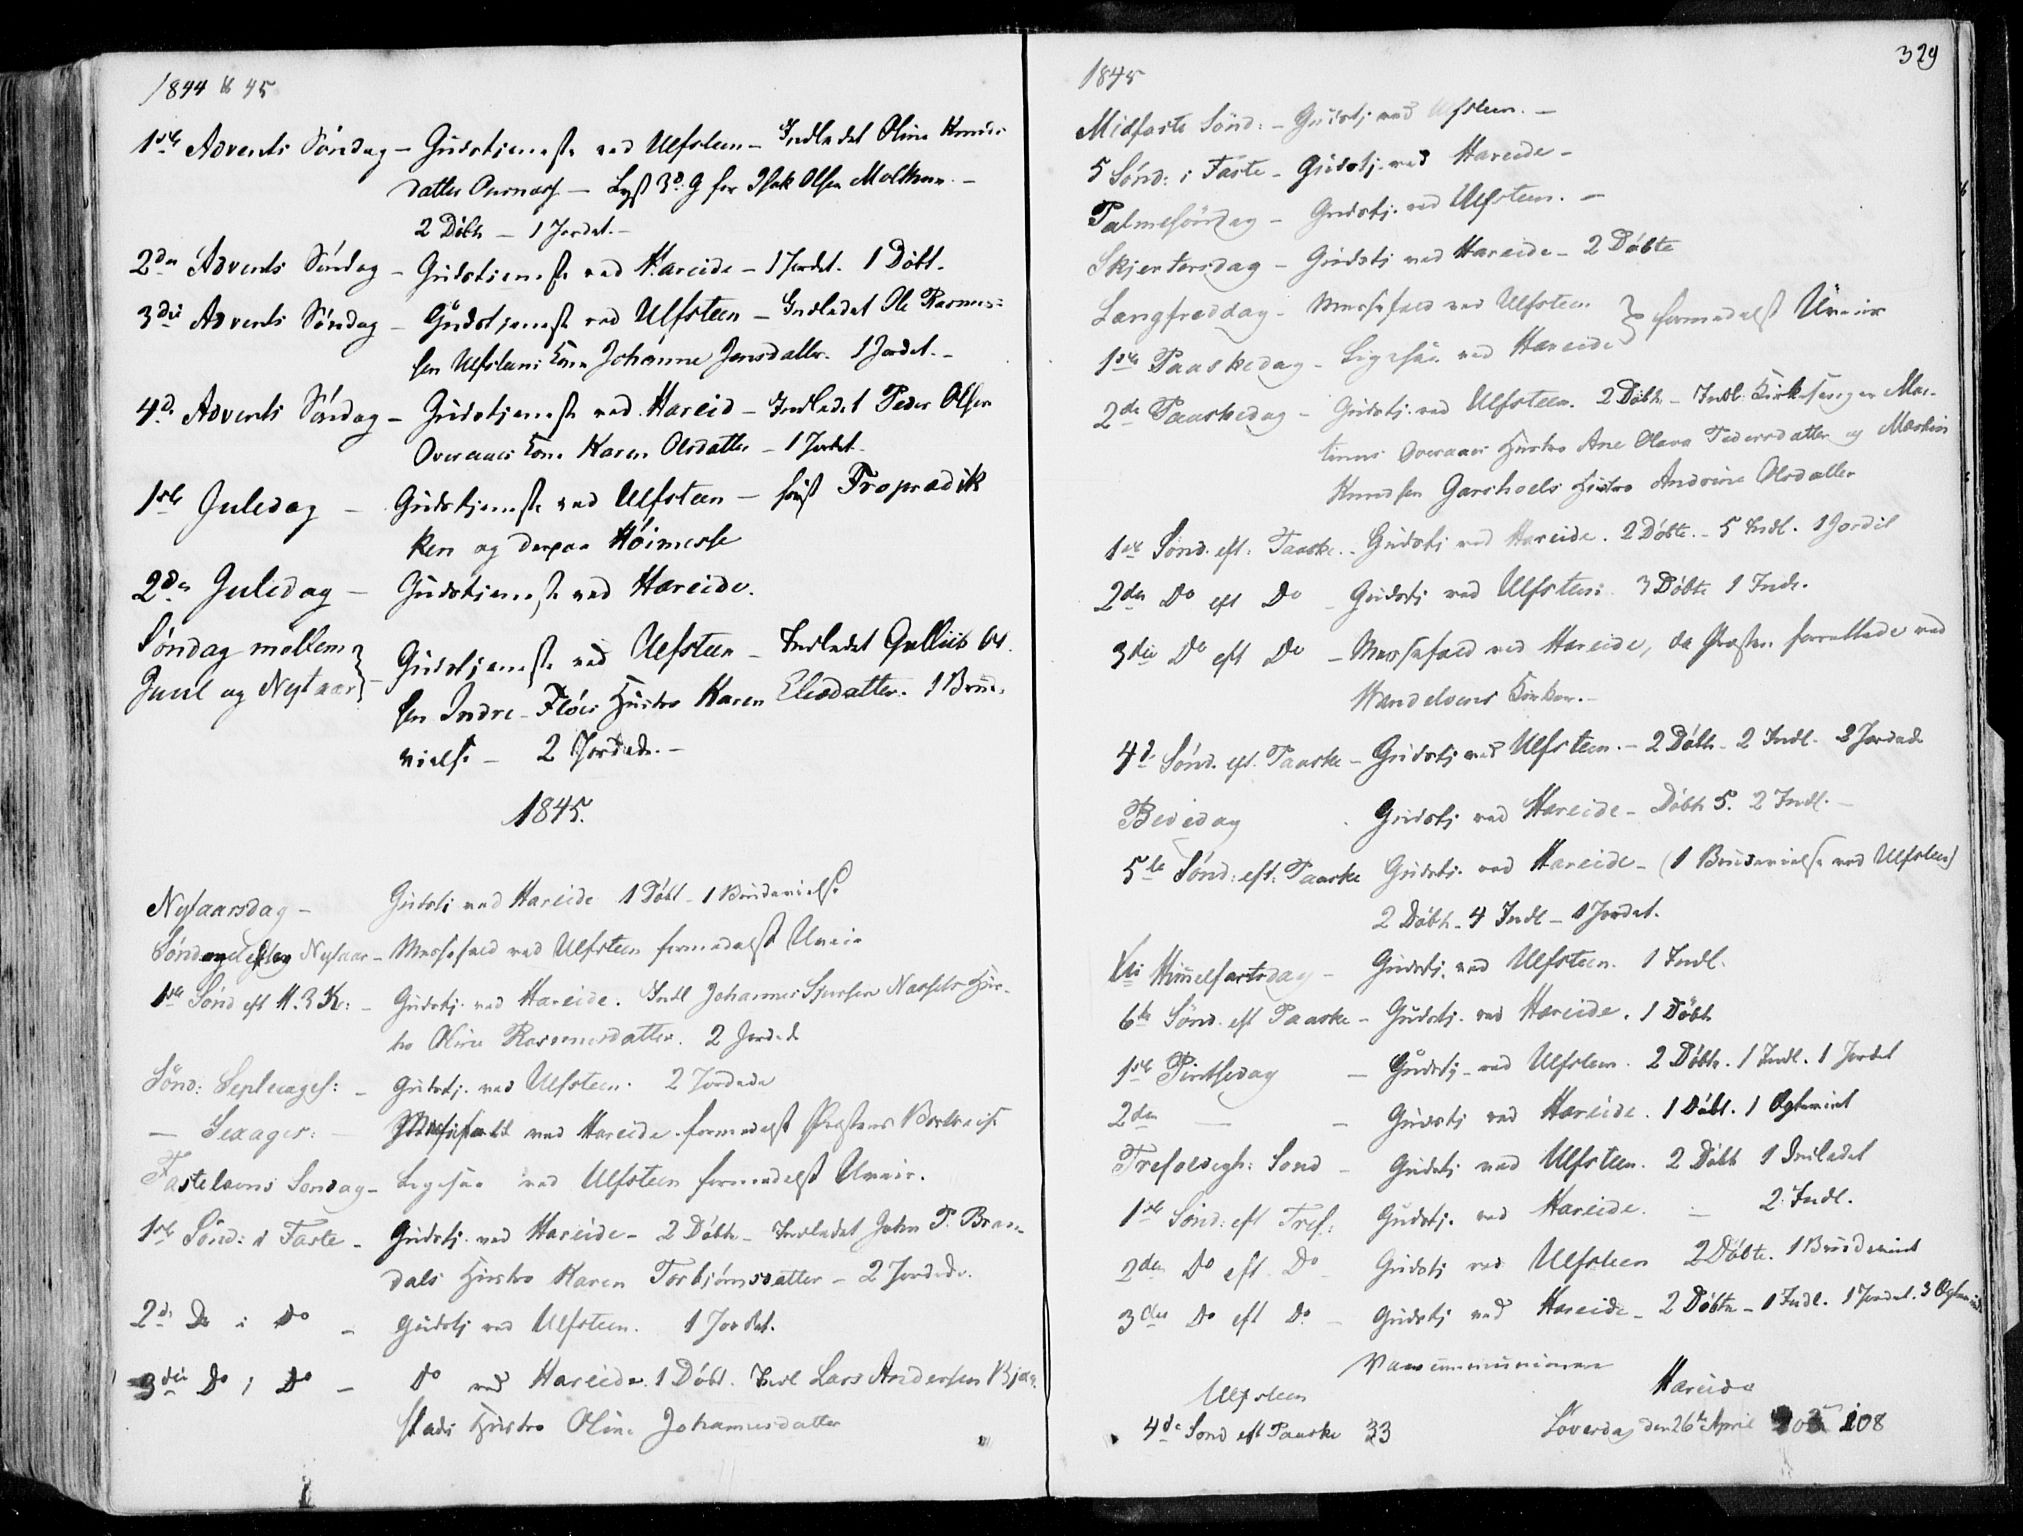 1844 & 45
1ste Advents Søndag – Gudstjeneste ved Ulfsteen – Indledet Oline Knuds-
datter – Lyst 3d. G for Isak Olsen
2 Døbte – 1 Jordet. –
2den Advents Søndag – Gudstjeneste ved Hareide – 1 Jordet. 1 Døbt.
3die Advents Søndag – Gudstjeneste ved Ulfsteen – Indledet Ole Rasmus-
sen Ulfsteens Kone Johanne Jensdatter. 1 Jordet. –
4de Advents Søndag – Gudstjeneste ved Hareid – Indledet Peder Olsen
Overaaes Kone Karen Olsdatter – 1 Jordet
1ste Juledag – Gudstjeneste ved Ulfsteen – først Froprædik
ken og derpaa Høimesse
2den Juledag – Gudstjeneste ved Hareide.
Søndag mellem
Juul og Nytaar } – Gudstjeneste ved Ulfsteen – Indledet Gulliik Ol-
sen Indre-Fløes Hustro Karen Eliasdatter. 1 Brude-
vielse – 2 Jordede. –
1845.
Nytaarsdag – Gudstj ved Hareide 1 Døbt – 1 Brudevielse
Søndag efter Nytaar – Messefald ved Ulfsteen formedelst Uveir
1ste Sønd eft H. 3 K: – Gudstj. ved Hareide. Indl Johannes Hus-
tro Oline Rasmusdatter. 2 Jordede
Sønd: Septuages: – Gudstj. ved Ulfsteen. 2 Jordede
— Sexages: – Messefald ved Hareide formedelst Præstens Bortreise
Fastelavns Søndag – Ligesaa ved Ulfsteen formedelst Uveir.
1ste Sønd: i Faste – Gudstj. ved Hareide – 2 Døbte – Indledet John P. Bran-
dals Hustro Karen Torbjørnsdatter – 2 Jordede.
2de Do i Do – Gudstj ved Ulfsteen. 1 Jordet.
3die Do i Do – Do ved Hareide. 1 Døbt. Indl Lars Andersen Bjør-
stads Hustro Oline Johannesdatter
329
1845
Midfaste Sønd: – Gudstj ved Ulfsteen. –
5 Sønd: i Faste – Gudstj. ved Hareide –
Palmesøndag – Gudstj. ved Ulfsteen. –
Skjertorsdag – Gudstj ved Hareide – 2 Døbte
Langfredag – Messefald ved Ulfsteen
1ste Paaskedag – Ligesaa ved Hareide } formedelst Uveir
2de Paaskedag – Gudstj. ved Ulfsteen. 2 Døbte – Indl: Kirkesanger Mar-
tinus Overaaes Hustro Ane Olava Pedersdatter og Martin
Knudsen Garshols Hustro Andrine Olsdatter
1ste Sønd. eft: Paaske. – Gudstj ved Hareide. 2 Døbte. – 5 Indl. 1 Jordet
2den Do eft Do – Gudstj ved Ulfsteen: 3 Døbte 1 Indl.
3die Do eft Do – Messefald ved Hareide, da Præsten forrettede ved
Vandelvens Kirken. –
4de Sønd. eft. Paaske – Gudstj ved Ulfsteen. – 2 Døbte – 2 Indl. 2 Jordede
Bededag Gudstj ved Hareide – Døbte 5. 2 Indl. –
5te Sønd: eft: Paaske Gudstj. ved Hareide – (1 Brudevielse ved Ulfsteen)
2 Døbte – 4 Indl – 1 Jordet.
Xti Himelfartsdag – Gudstj. ved Ulfsteen. 1 Indl.
6te Sønd. eft Paaske – Gudstj. ved Hareide. 1 Døbt
1ste Pintsedag – Gudstj – ved Ulfsteen. 2 Døbte. 1 Indl. 1 Jordet
2den — – Gudstj ved Hareide. 1 Døbt. 1 Egteviet
Trefoldigh: Sønd – Gudstj ved Ulfsteen. 2 Døbte 1 Indledet
1ste Sønd: eft Tref: Gudstj. ved Hareide. – 2 Indl.
2den Do eft. Do – Gudstj ved Ulfsteen 2 Døbte. 1 Brudeviet
3die Do eft Do – Gudstj ved Hareide – 2 Døbte – 1 Indl. 1 Jordet. 3
Vaccinationen
Ulfsteen Hareide
4de Sønd eft Paaske 33 Løverdag den 26te April 108